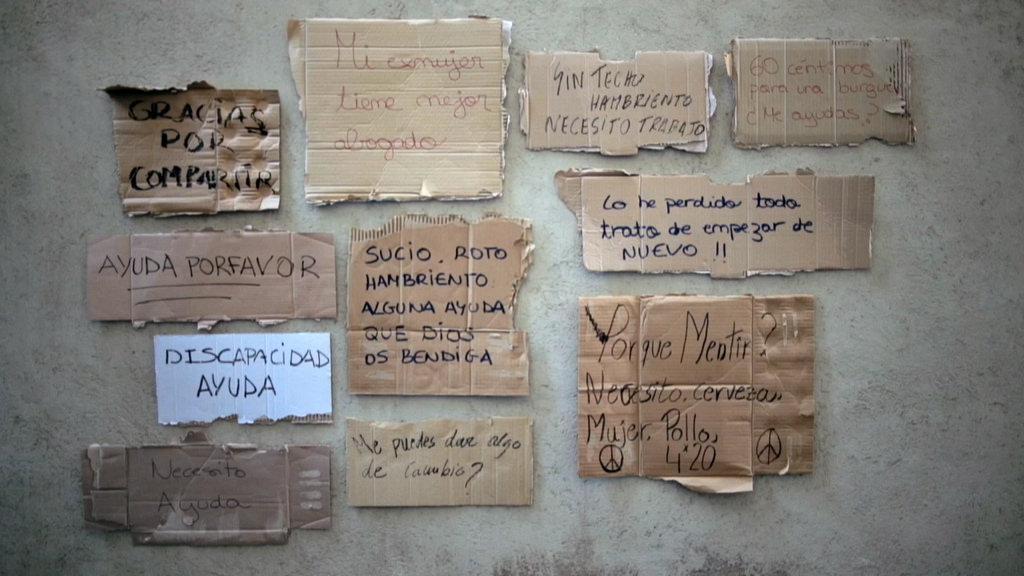 GRACIAS
POR
COMPARTIR
Mi exmujer
tiene mejor
abogado
SIN TECHO
HAMBRIENTO
NECESITO TRABAJO
60 céntimos
para una burguer
¿Me ayudas?
AYUDA PORFAVOR
SUCIO. ROTO
HAMBRIENTO
ALGUNA AYUDA
QUE DIOS
OS BENDIGA
Lo he perdido todo
trato de empezar de
NUEVO !!
DISCAPACIDAD
AYUDA
Por que Mentir?
Necesito. cerveza,
Mujer. Pollo,
4'20
Necesito
Ayuda
Me puedes dar algo
de cambio?